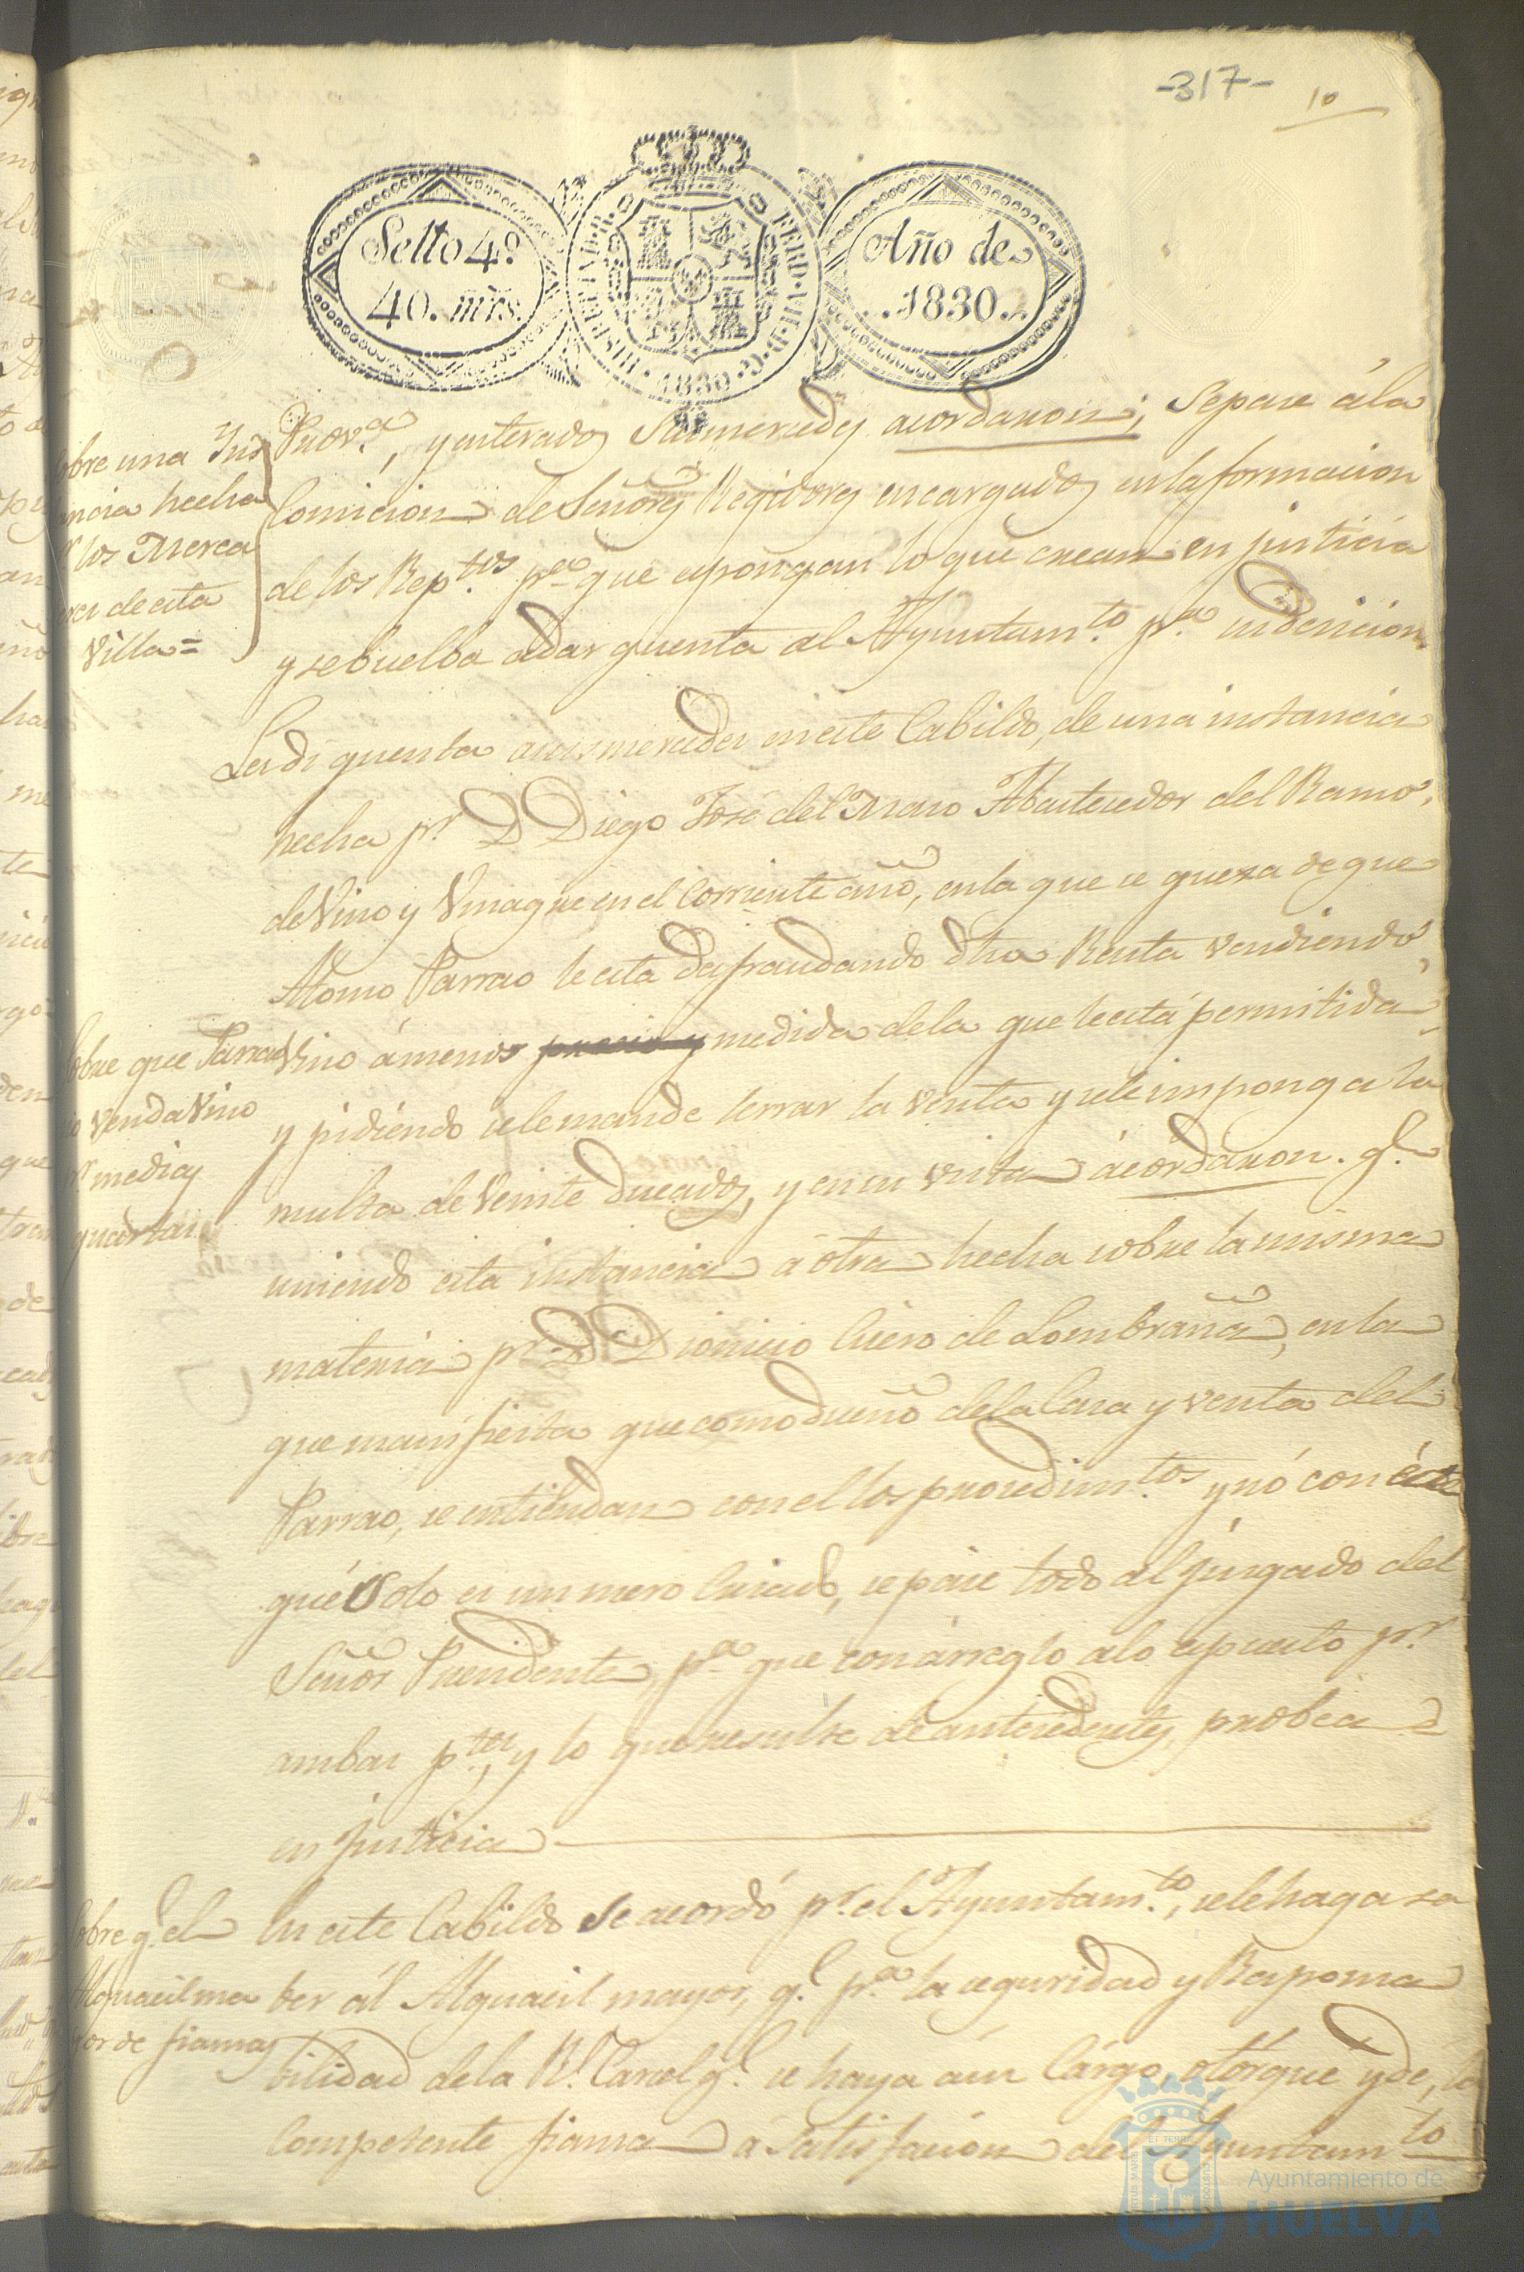 -317-
10
Sello 4º
40. mrs.
HISPANIAR. R. FERD. VII. D. G. 1830.
Año de
1830.
obre una Ins
ancia hecha
r los Merca
eres de esta
Villa=
Prov.ª, y enterados Sus mercedes acordaron; Sepase á la
Comicion de Señores Regidores encargados en la formacion
de los Rep.tos p.ª que espongan lo que crean en justicia
y se buelba a dar quenta al Ayuntam.to p.ª su decicion
Les di quenta a sus mercedes en este Cabildo, de una instancia
hecha p.r D Diego José del Maro Abastecedor del Ramo
de Vino y Vinagre en el Corriente año, en la que se quexa de que
Alonso Parrao le esta defraudando dha Renta vendiendo
Vino á menos precio y medida dela que le está permitida
y pidiendo se le mande serrar la venta y se le imponga la
multa de Veinte Ducados, y en su vista ácordaron. q.e
uniendo esta instancia á otra hecha sobre la misma
materia p.r D Dionicio Cuero de Lombraña, en la
que manifiesta que como dueño de la Casa y venta del
Parrao, se entiendan con el los procedim.tos y nó con éste
qué Solo es un mero Criado, se páse todo al Jusgado del
Señor Presidente, p.ª que con árreglo a lo espuesto p.r
ambas p.tes, y lo que resulte de antecedentes, probéa
en Justicia
obre que Parrao
o venda Vino
p.r medias
quartas.
En este Cabildo Se acordó p.r el Ayuntam.to, se le haga sa
ber ál Alguacil mayor, q.e p.ª la seguridad y Responsa
bilidad de la R.l Carcel q.e se haya á su Cárgo, otórgue y dé, la
Competente fiansa á Satisfacion del Ayuntam.to
obre q.e el
Alguacil ma
or de fiansas
Ayuntamiento de
HUELVA